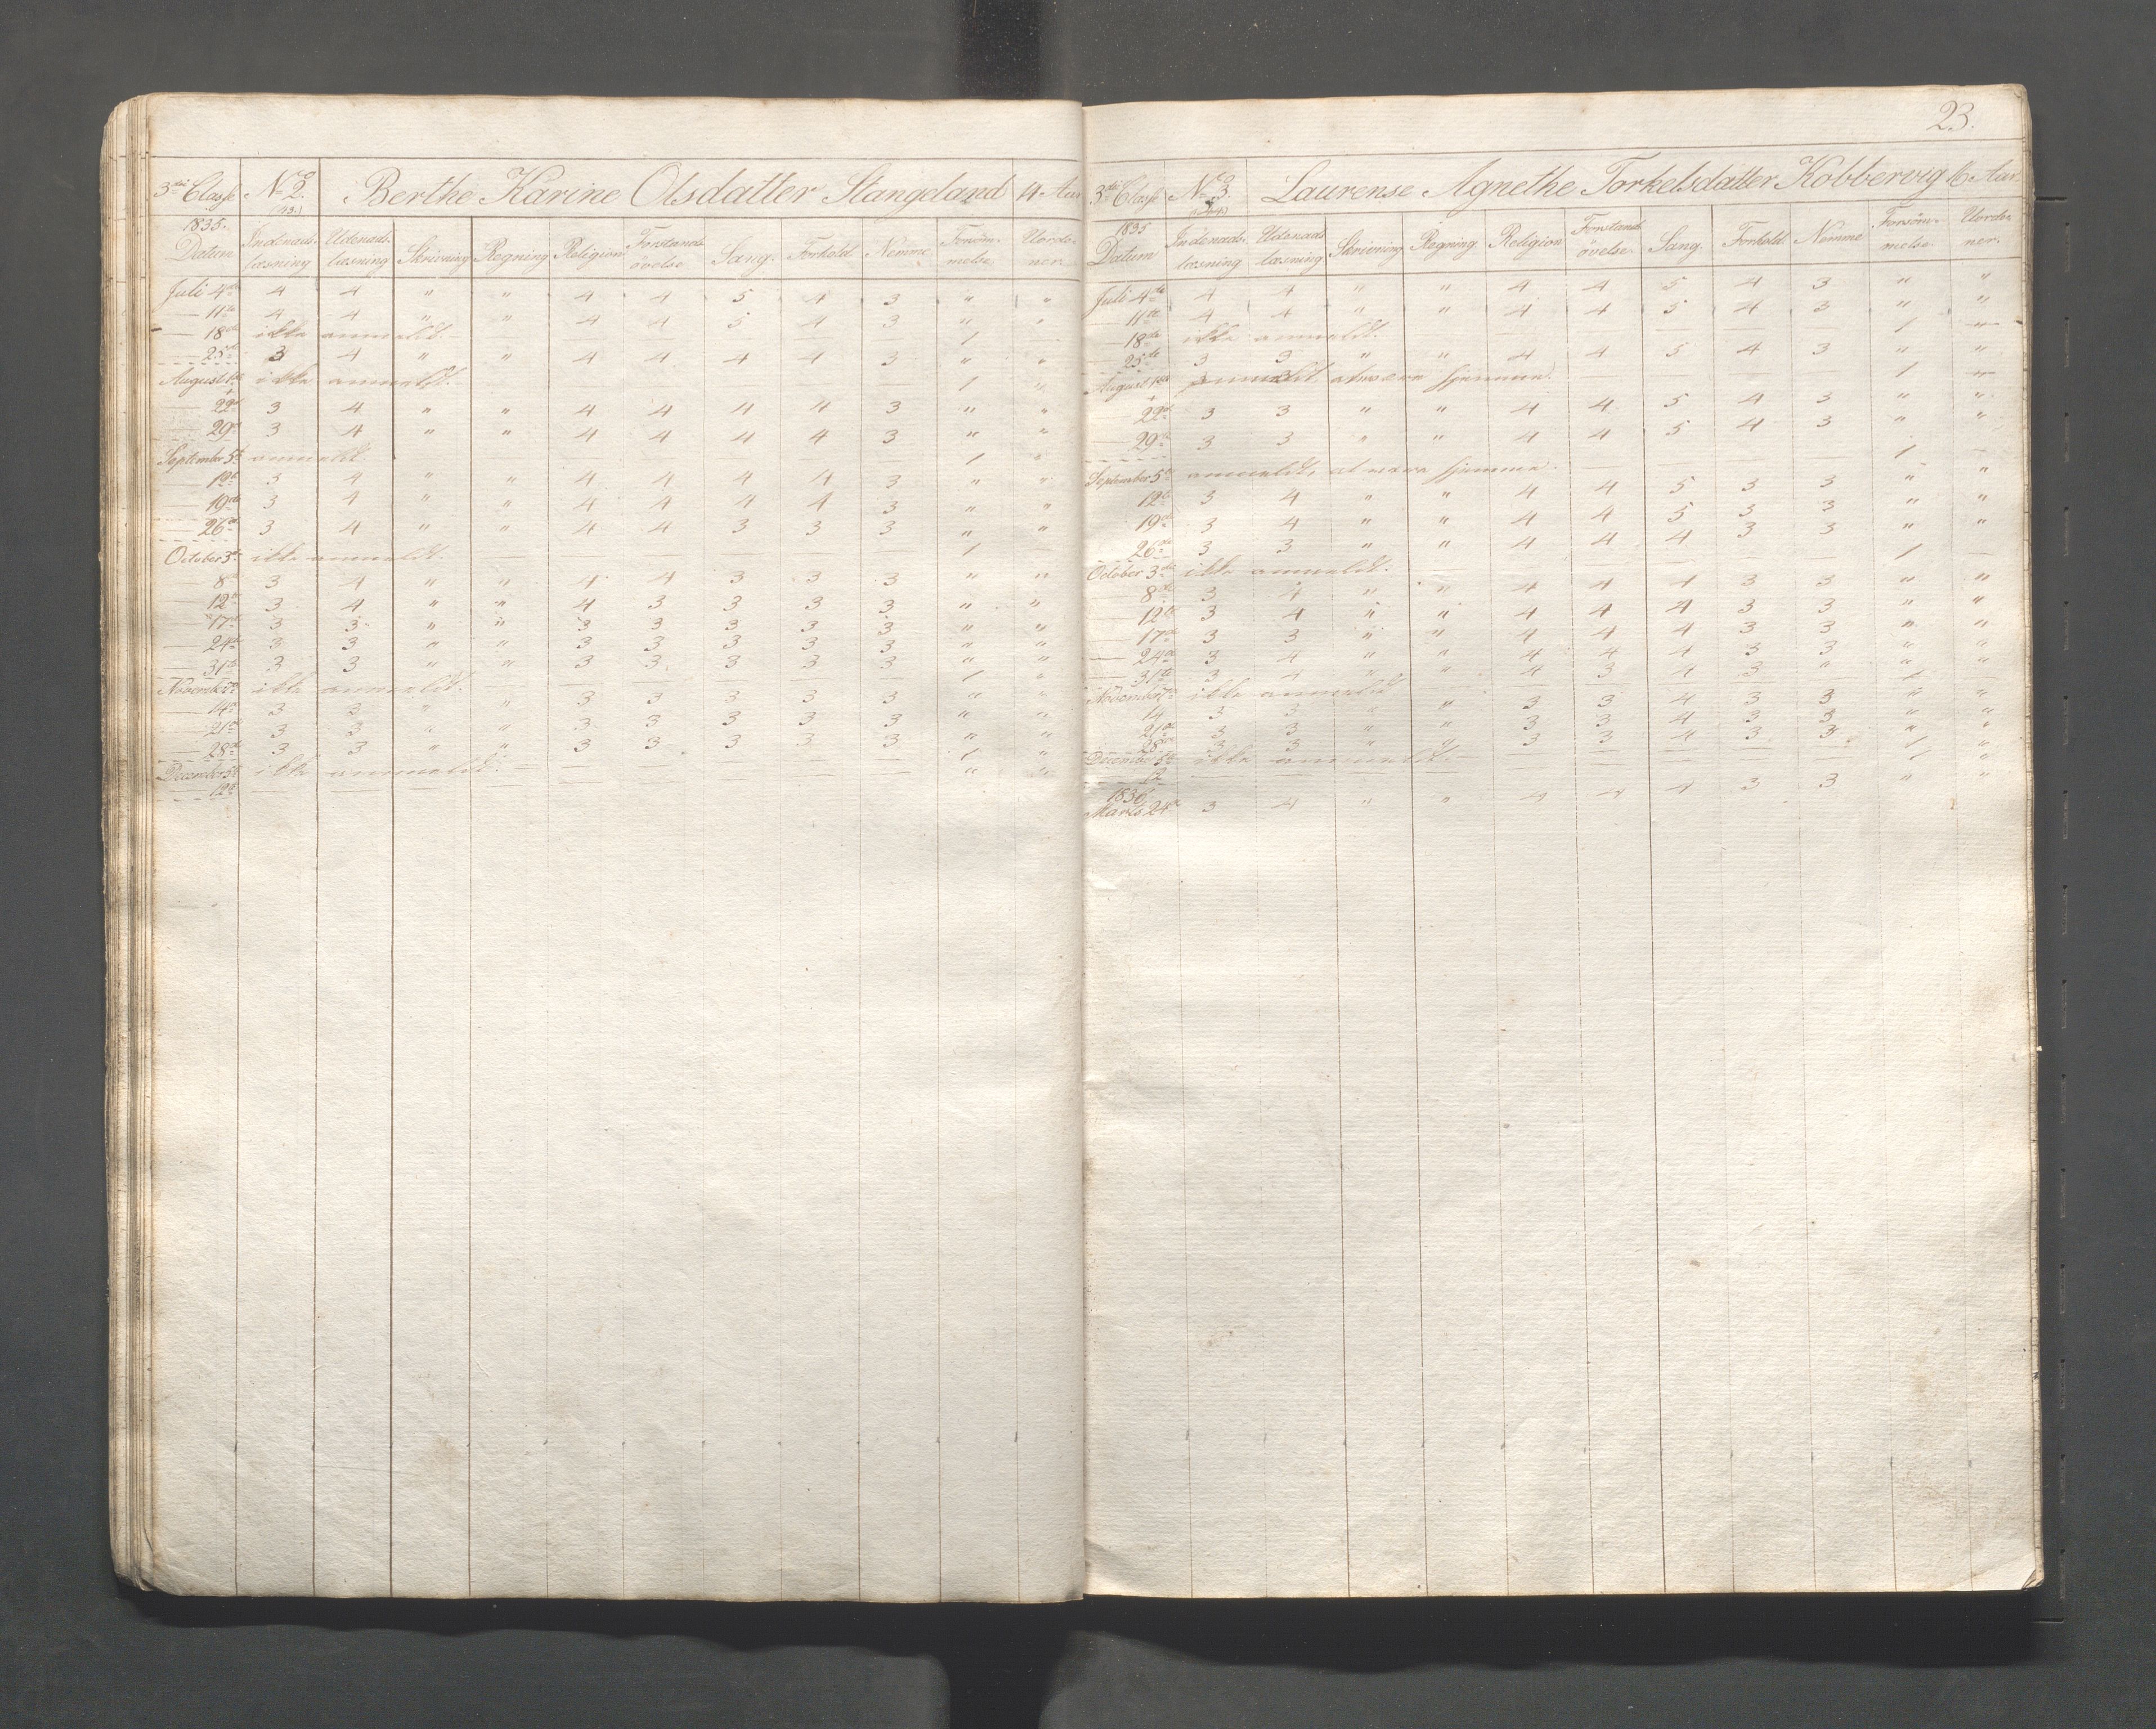 3die Classe No 2. Berthe Karine Olsdatter Stangeland 11 Aar
1835. Datum Indenads-læsning Udenads-læsning Skrivning Regning Religion Forstands-övelse Sang. Forhold Nemme Forsöm-melse Uorde-ner.
Juli 4de 4 4 " " 4 4 5 4 3 " "
— 11te 4 4 " " 4 4 5 4 3 " "
— 18de ikke anmeldt. — 1
— 25de 3 4 " " 4 4 4 4 3 " "
August 1ste ikke anmeldt. 1 "
— 22de 3 4 " " 4 4 4 4 3 " "
— 29de 3 4 " " 4 4 4 4 3 " "
September 5te anmeldt 1 "
— 12te 3 4 " " 4 4 4 4 3 " "
— 19de 3 4 " " 4 4 4 4 3 " "
— 26de 3 4 " " 4 4 3 3 3 " "
October 3die ikke anmeldt. — 1 —
— 8de 3 4 " " 4 4 3 3 3 " "
— 12te 3 4 " " 4 3 3 3 3 " "
— 17de 3 3 " " 3 3 3 3 3 " "
— 24de 3 3 " " 3 3 3 3 3 " "
— 31te 3 3 " " 3 3 3 3 3 " "
November 7de ikke anmeldt. — 1 "
— 14de 3 3 " " 3 3 3 3 3 " "
— 21de 3 3 " " 3 3 3 3 3 " "
— 28de 3 3 " " 3 3 3 3 3 " "
December 5te ikke anmeldt. — 1 "
— 12te — " "
23.
3die Classe No 3. Laurense Agnethe Torkelsdatter Kobbervig 16 Aar
1835 Datum Indenads-læsning Udenads læsning Skrivning Regning Religion Forstands övelse Sang. Forhold Nemme Forsöm-melse Uorde-ner.
Juli 4de 4 4 " " 4 4 5 4 3 " "
— 11te 4 4 " " 4 4 5 4 3 " "
— 18de ikke anmeldt. — 1 "
— 25de 3 3 " " 4 4 5 4 3 " "
August 1ste anmeldt at være hjemme. — 1 "
— 22de 3 3 " " 4 4 5 4 3 " "
— 29de 3 3 " " 4 4 5 4 3 " "
September 5te anmeldt, at være hjemme. — 1 —
12te 3 4 " " 4 4 5 3 3 " "
19de 3 4 " " 4 4 5 3 3 " "
26de 3 3 " " 4 4 4 3 3 " "
October 3die ikke anmeldt. — 1 —
8de 3 4 " " 4 4 4 3 3 " "
— 12te 3 4 " " 4 4 4 3 3 " "
— 17de 3 3 " " 4 4 4 3 3 " "
— 24de 3 4 " " 4 4 4 3 3 " "
— 31te 3 4 " " 4 3 4 3 " " "
November 7de ikke anmeldt — 1 —
14 3 3 " " 3 3 4 3 3 " "
21de 3 3 " " 3 3 4 3 3 " "
28de 3 3 " " 3 3 4 3 3 " "
December 5te ikke anmeldt. — 1 "
— 12 — 1 "
1836.
Marts 24de 3 4 " " 4 4 4 3 3 " "